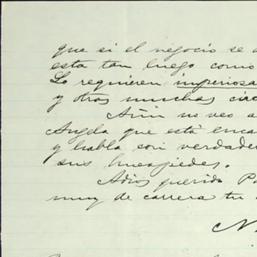 que si el negocio se a
esta tan luego como
lo requieren imperiosa
y otras muchas circ
Aún no veo a
Angela que está enca
y habla con verdader
sus huespedes.
Adios querido Pa
muy de carrera tu
N.